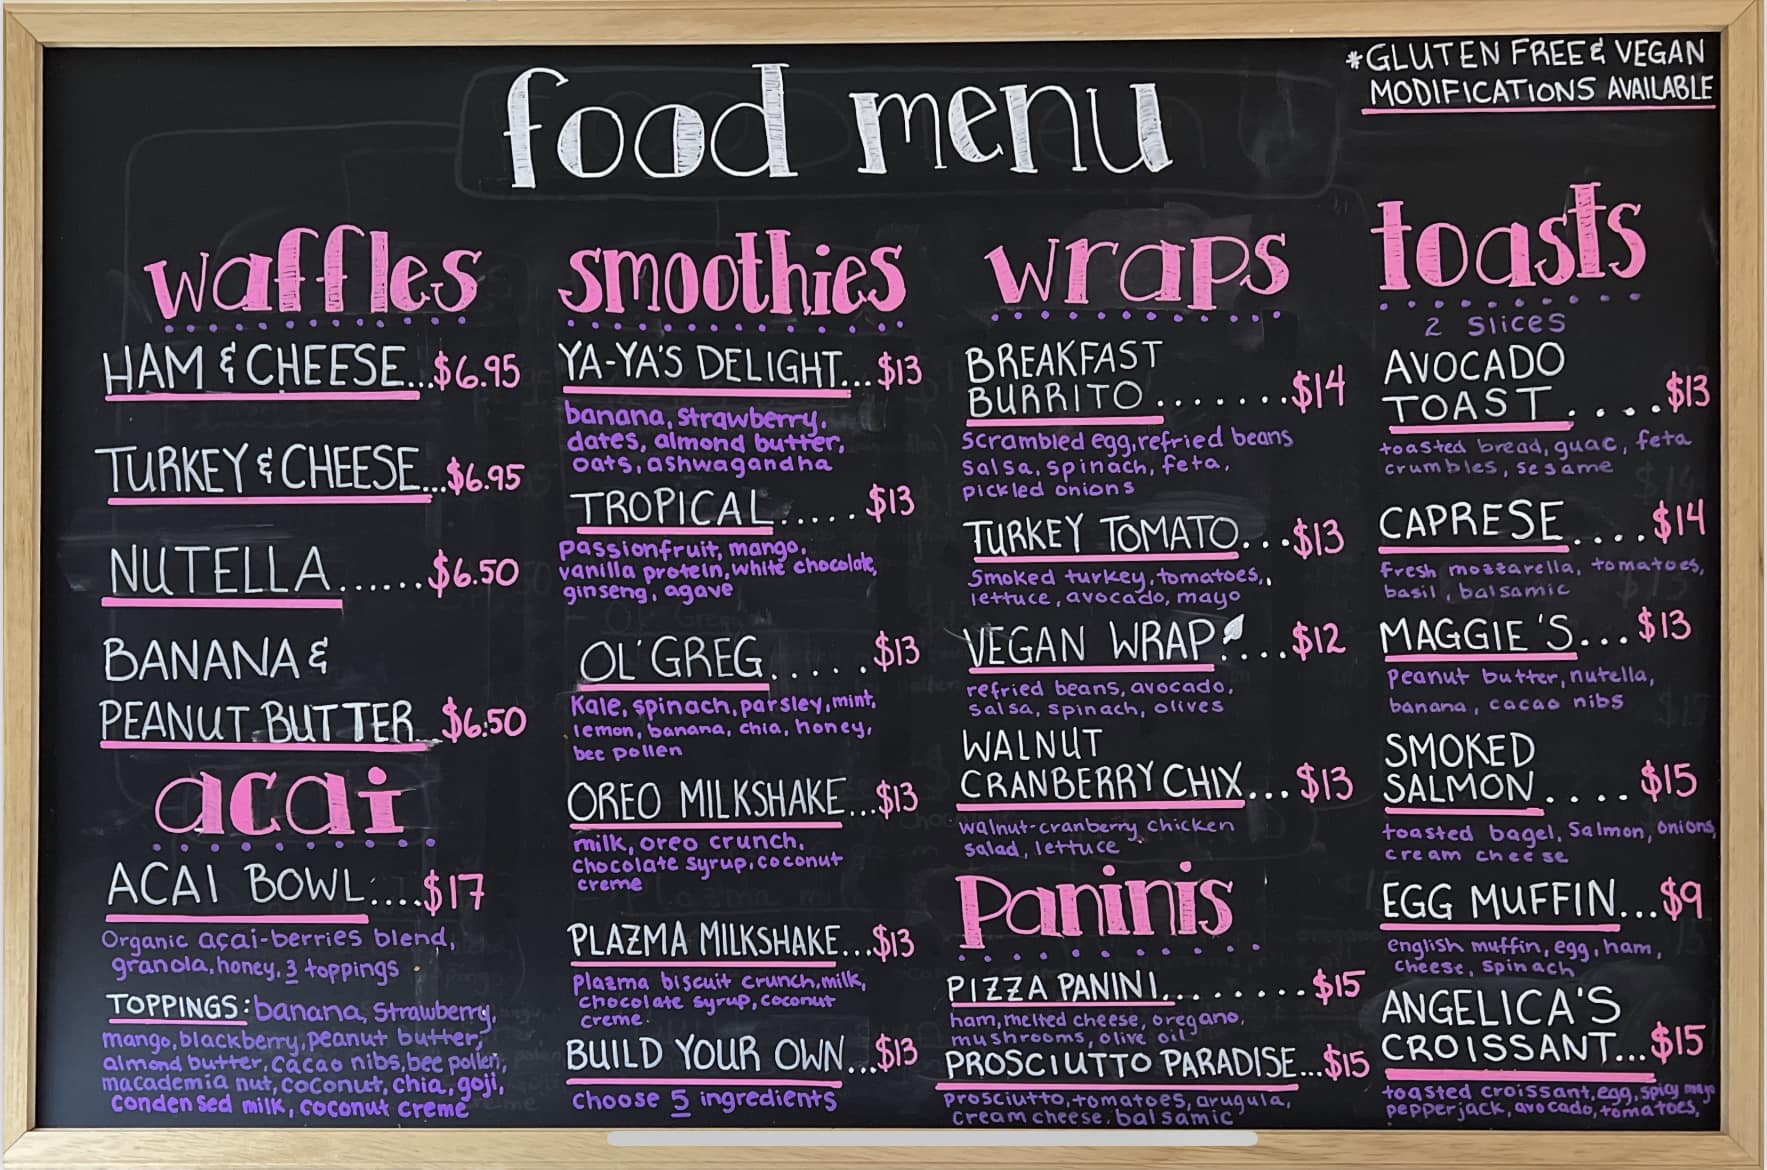 *GLUTEN FREE & VEGAN
MODIFICATIONS AVAILABLE
food menu
waffles
HAM & CHEESE...$6.95
TURKEY & CHEESE...$6.95
NUTELLA......$6.50
BANANA &
PEANUT BUTTER...$6.50
acai
ACAI BOWL....$17
Organic açai-berries blend,
granola, honey, 3 toppings
TOPPINGS: banana, strawberry,
mango, blackberry, peanut butter,
almond butter, cacao nibs, bee pollen,
macademia nut, coconut, chia, goji,
condensed milk, coconut creme
smoothies
YA-YA'S DELIGHT...$13
banana, strawberry,
dates, almond butter,
oats, ashwagandha
TROPICAL.....$13
passionfruit, mango,
vanilla protein, white chocolate,
ginseng, agave
OL' GREG.....$13
Kale, spinach, parsley, mint,
lemon, banana, chia, honey,
bee pollen
OREO MILKSHAKE...$13
milk, oreo crunch,
chocolate syrup, coconut
creme
PLAZMA MILKSHAKE...$13
plazma biscuit crunch, milk,
chocolate syrup, coconut
creme
BUILD YOUR OWN...$13
choose 5 ingredients
wraps
BREAKFAST
BURRITO.......$14
scrambled egg, refried beans
salsa, spinach, feta,
pickled onions
TURKEY TOMATO...$13
Smoked turkey, tomatoes,
lettuce, avocado, mayo
VEGAN WRAP....$12
refried beans, avocado,
salsa, spinach, olives
WALNUT
CRANBERRY CHIX...$13
walnut-cranberry chicken
salad, lettuce
Paninis
PIZZA PANINI........$15
ham, melted cheese, oregano,
mushrooms, olive oil
PROSCIUTTO PARADISE...$15
prosciutto, tomatoes, arugula,
cream cheese, balsamic
toasts
2 slices
AVOCADO
TOAST.....$13
toasted bread, guac, feta
crumbles, sesame
CAPRESE....$14
fresh mozzarella, tomatoes,
basil, balsamic
MAGGIE'S...$13
peanut butter, nutella,
banana, cacao nibs
SMOKED
SALMON....$15
toasted bagel, salmon, onions,
cream cheese
EGG MUFFIN...$9
english muffin, egg, ham,
cheese, spinach
ANGELICA'S
CROISSANT...$15
toasted croissant, egg, spicy mayo
pepperjack, avocado, tomatoes,